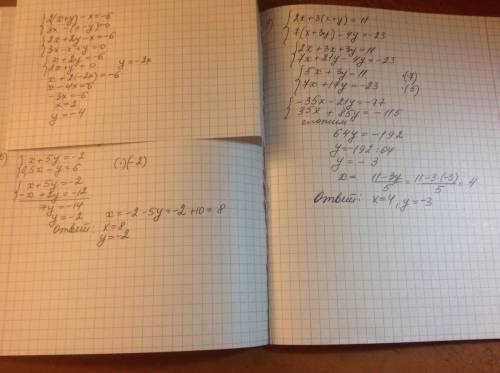 2(x+y)-x=-6
3x-(x-y)=0
2x+2y-x=-6
3x-x+y=0
x+2y=-6
2x+y=0 y=-2x
x+2(-2x)=-6
x-4x=-6
-3x=-6
x=2
y=-4
x+5y=-2
0,5x-y=6 (·)(-2)
x+5y=-2
-x+2y=-12
7y=-14
y=-2
x=-2-5y=-2+10=8
Ответ: x=8
y=-2
2x+3(x+y)=11
7(x+3y)-4y=-23
2x+3x+3y=11
7x+21y-4y=-23
5x+3y=11 (-7)
7x+17y=-23 (5)
-35x-21y=-77
35x+85y=-115
сложим
64y=-192
y=-192:64
y=-3
x= 11-3y/5 = 11-3·(-3)/5 = 4
Ответ: x=4, y=-3